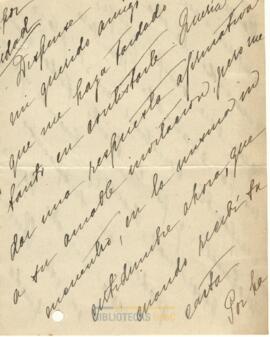 por
Ciudad
Dispense
mi querido amigo
que me haya tardado
tanto en contestarle. Quería
dar una respuesta afirmativa
a su amable invitación, pero me
encuentro, en la misma in
certidumbre ahora, que
cuando recibí su
carta
Por ha
BIBLIOTECAS